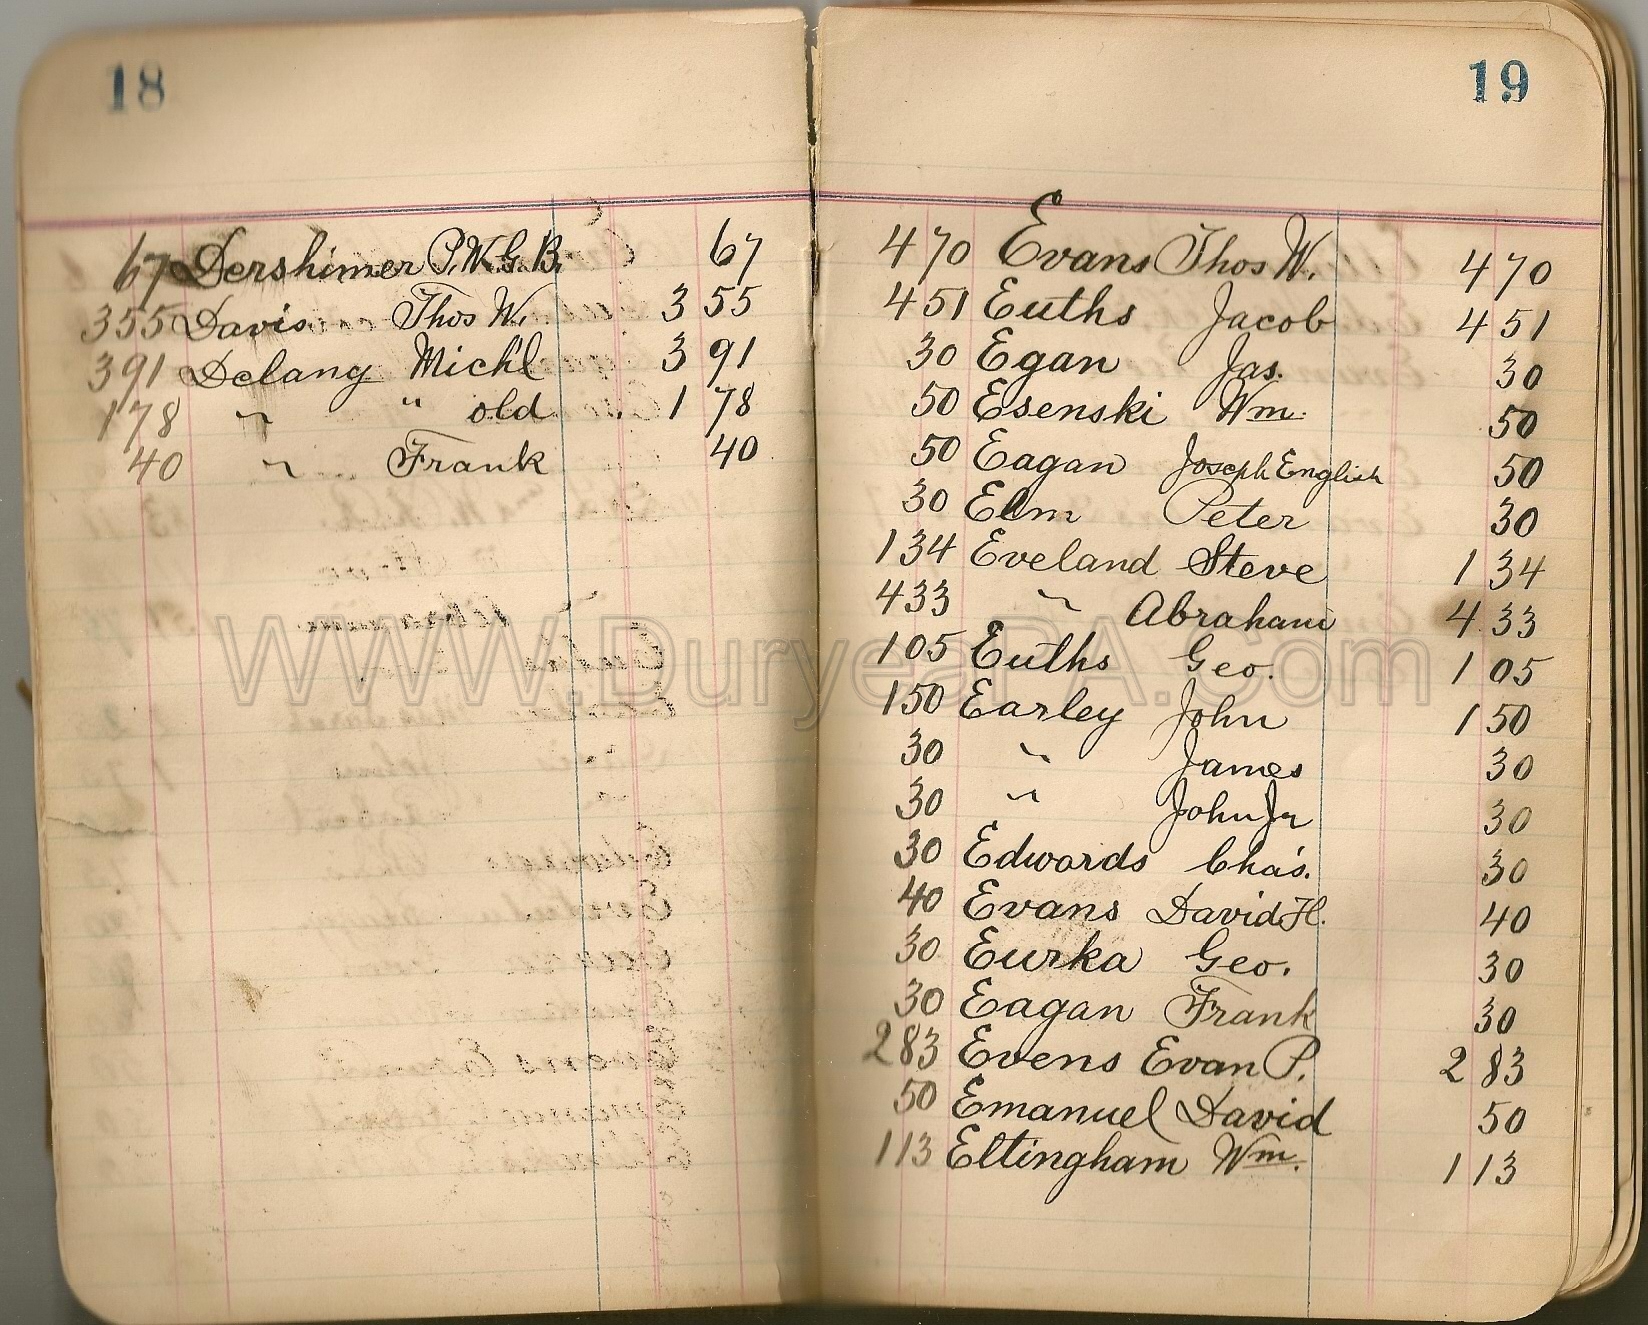 18
67 Dershimer P.W.G.B. 67
355 Davis Thos W. 3 55
391 Delang Mich'l 3 91
178 " " old 1 78
40 " Frank 40
19
470 Evans Thos W. 4 70
451 Euths Jacob 4 51
30 Egan Jas. 30
50 Esenski Wm. 50
50 Eagan Joseph English 50
30 Elm Peter 30
134 Eveland Steve 1 34
433 " Abraham 4 33
105 Euths Geo. 1 05
150 Earley John 1 50
30 " James 30
30 " John Jr 30
30 Edwards Cha's. 30
40 Evans David H. 40
30 Eurka Geo. 30
30 Eagan Frank 30
283 Evens Evan P. 2 83
50 Emanuel David 50
113 Eltingham Wm. 1 13
WWW.DuryeaPA.Com